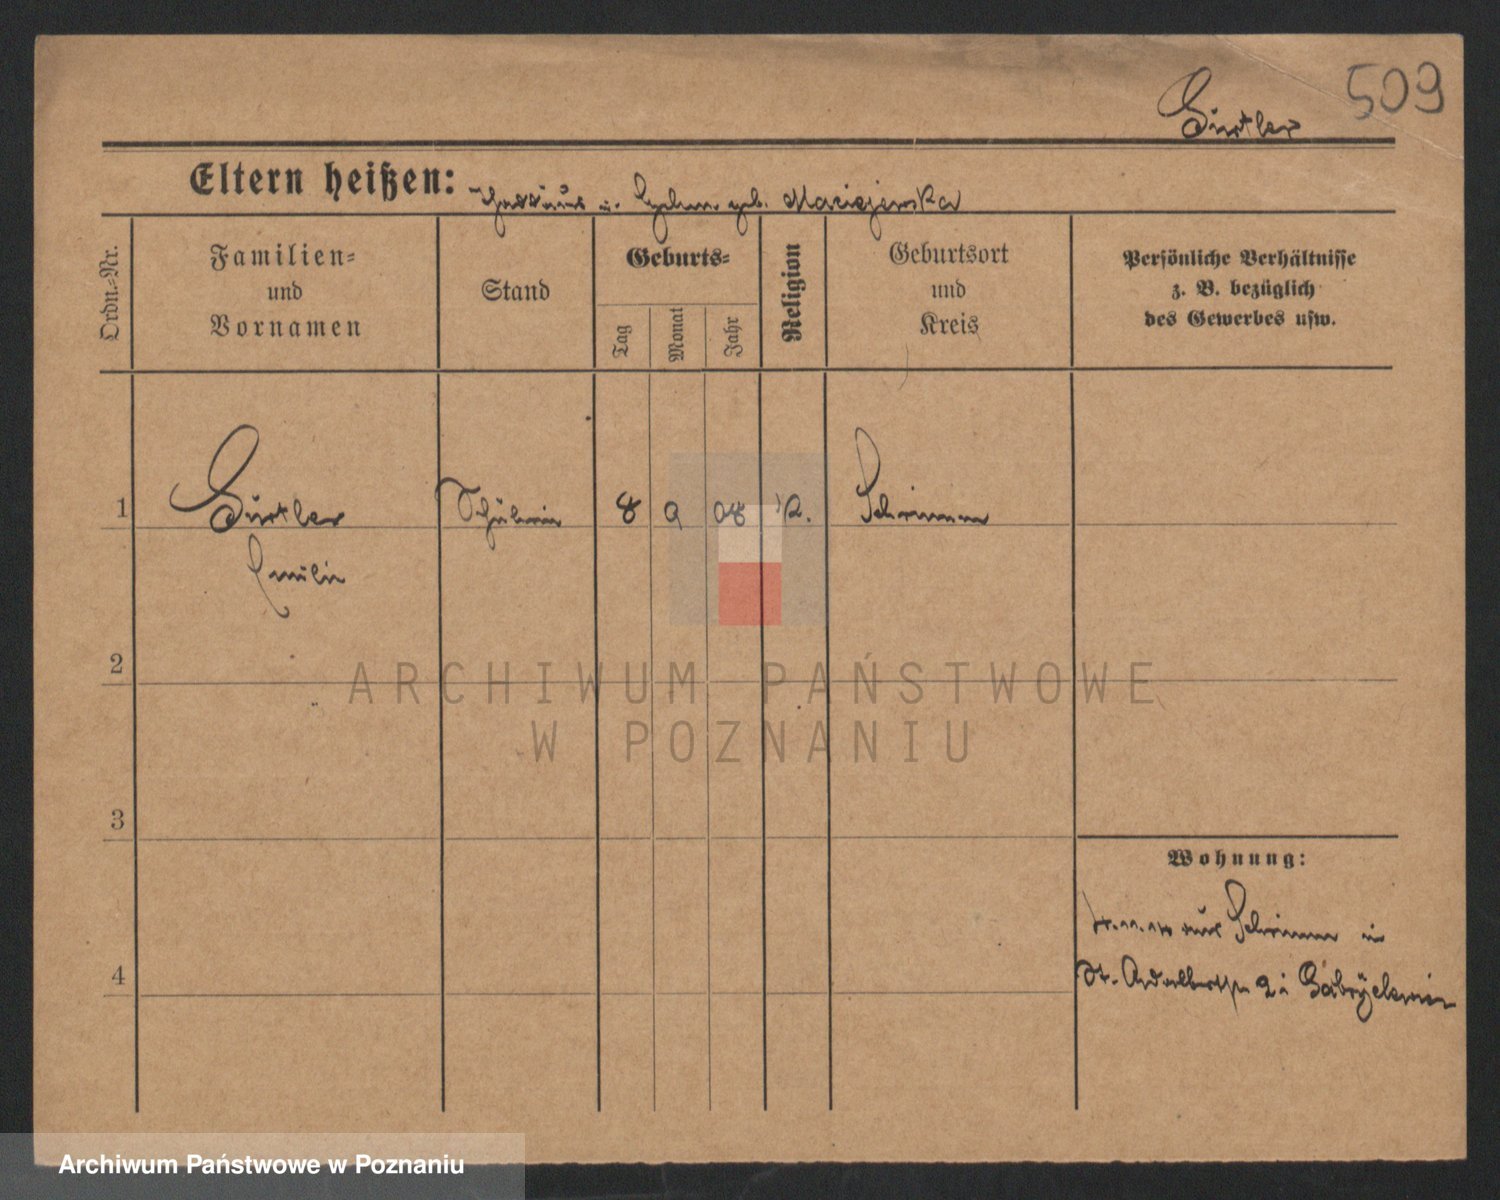 509
Gürtler
Eltern heißen: u. geb. Maciejewska
Ordn.-Nr.
Familien-
und
Vornamen
Stand
Geburts-
Tag
Monat
Jahr
Religion
Geburtsort
und
Kreis
Persönliche Verhältnisse
z. B. bezüglich
des Gewerbes usw.
1 Gürtler Schülerin 8 9 08 K. Schrimm
Emilie
2
ARCHIWUM PAŃSTWOWE
W POZNANIU
3
Wohnung:
aus Schrimm in
4
St. Adalbertstr. 2
Archiwum Państwowe w Poznaniu